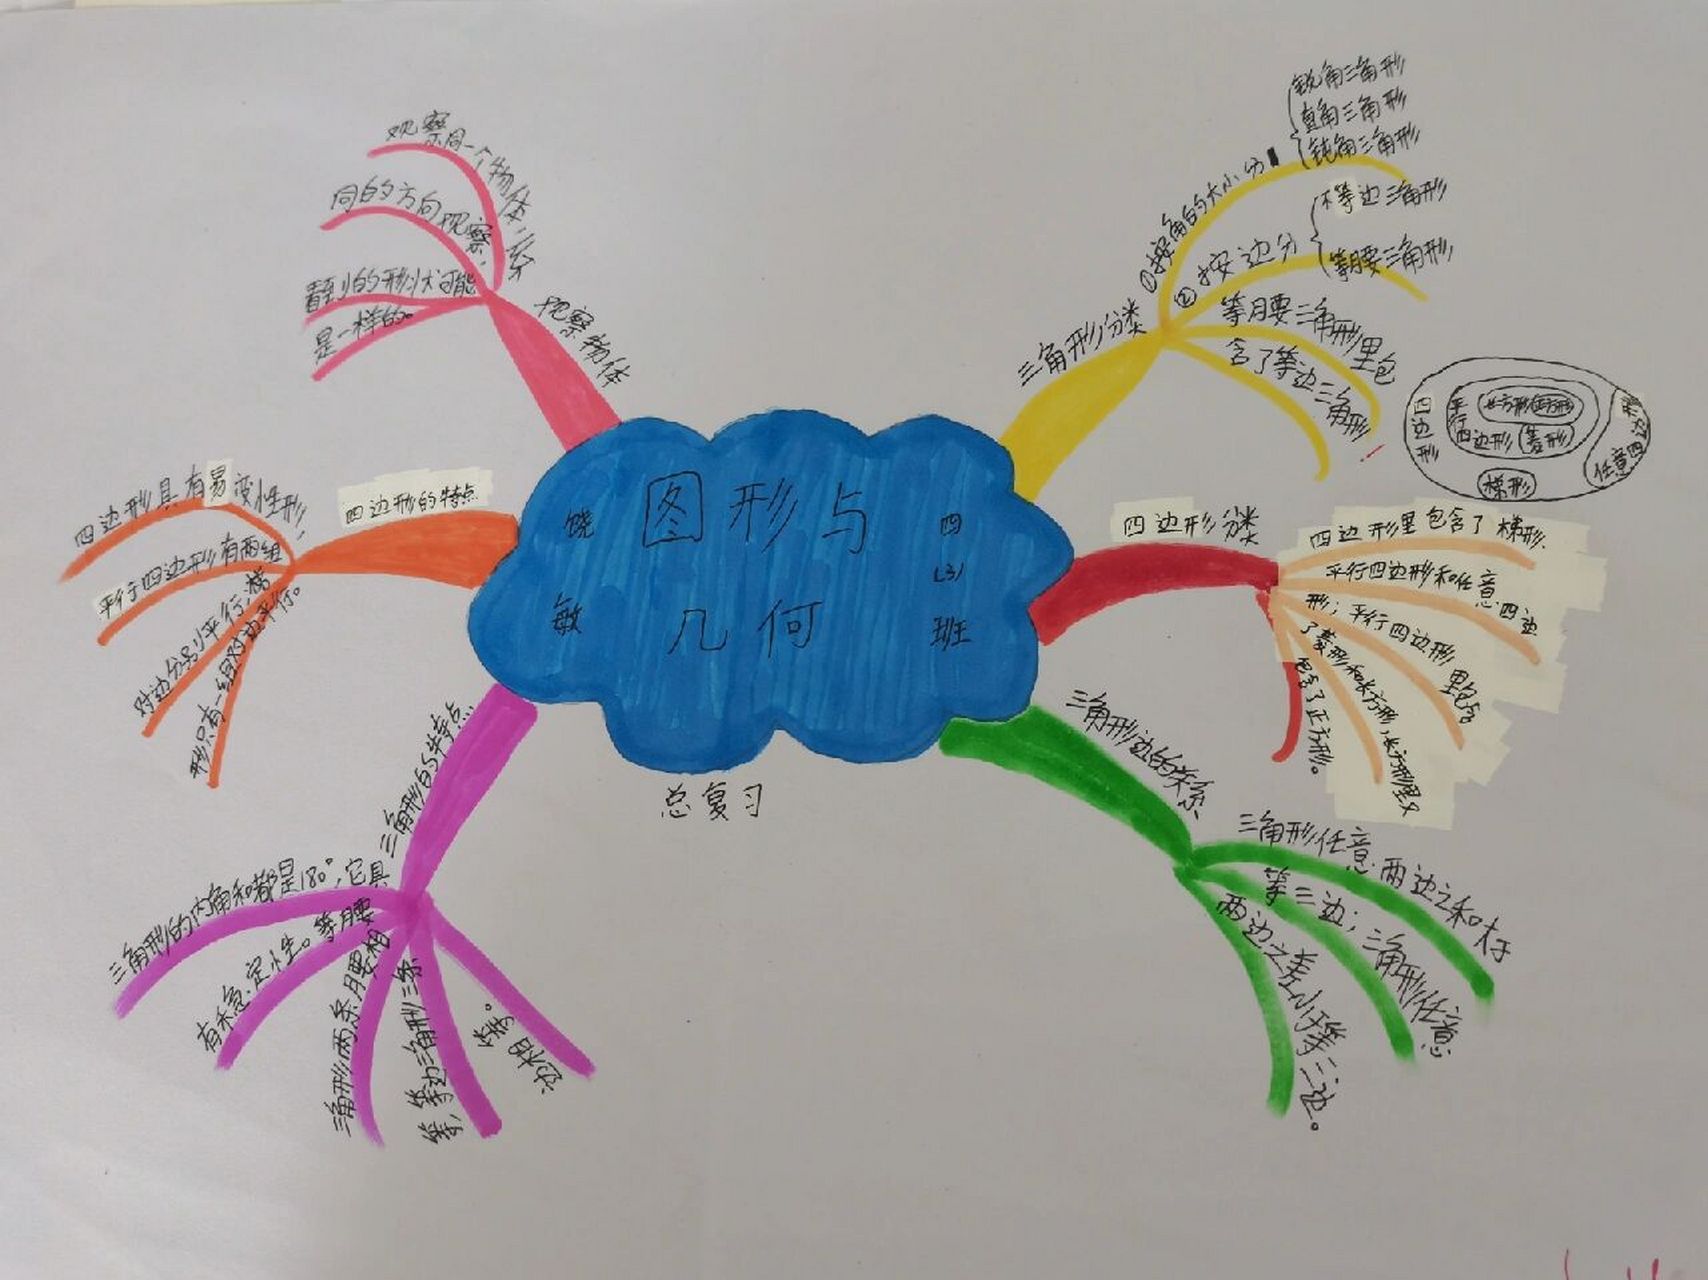 图形与
几何
饶
敏
四
(3)
班
总复习
观察物体
观察同一个物体,从
同的方向观察,
看到的形状可能
是一样的。
三角形分类
①按角的大小分
锐角三角形
直角三角形
钝角三角形
②按边分
不等边三角形
等腰三角形
等腰三角形里包
含了等边三角形
四边形
平行四边形
长方形
正方形
菱形
梯形
任意四
四边形分类
四边形里包含了梯形、
平行四边形和任意四边
形;平行四边形里包含
了菱形和长方形,长方形里又
包含了正方形。
三角形边的关系
三角形任意两边之和大于
第三边;三角形任意
两边之差小于第三边。
三角形的特点
三角形的内角和都是180°,它具
有稳定性。等腰
三角形两条腰相
等,等边三角形三条
边相等。
四边形的特点
四边形具有易变性形,
平行四边形有两组
对边分别平行,梯
形只有一组对边平行。